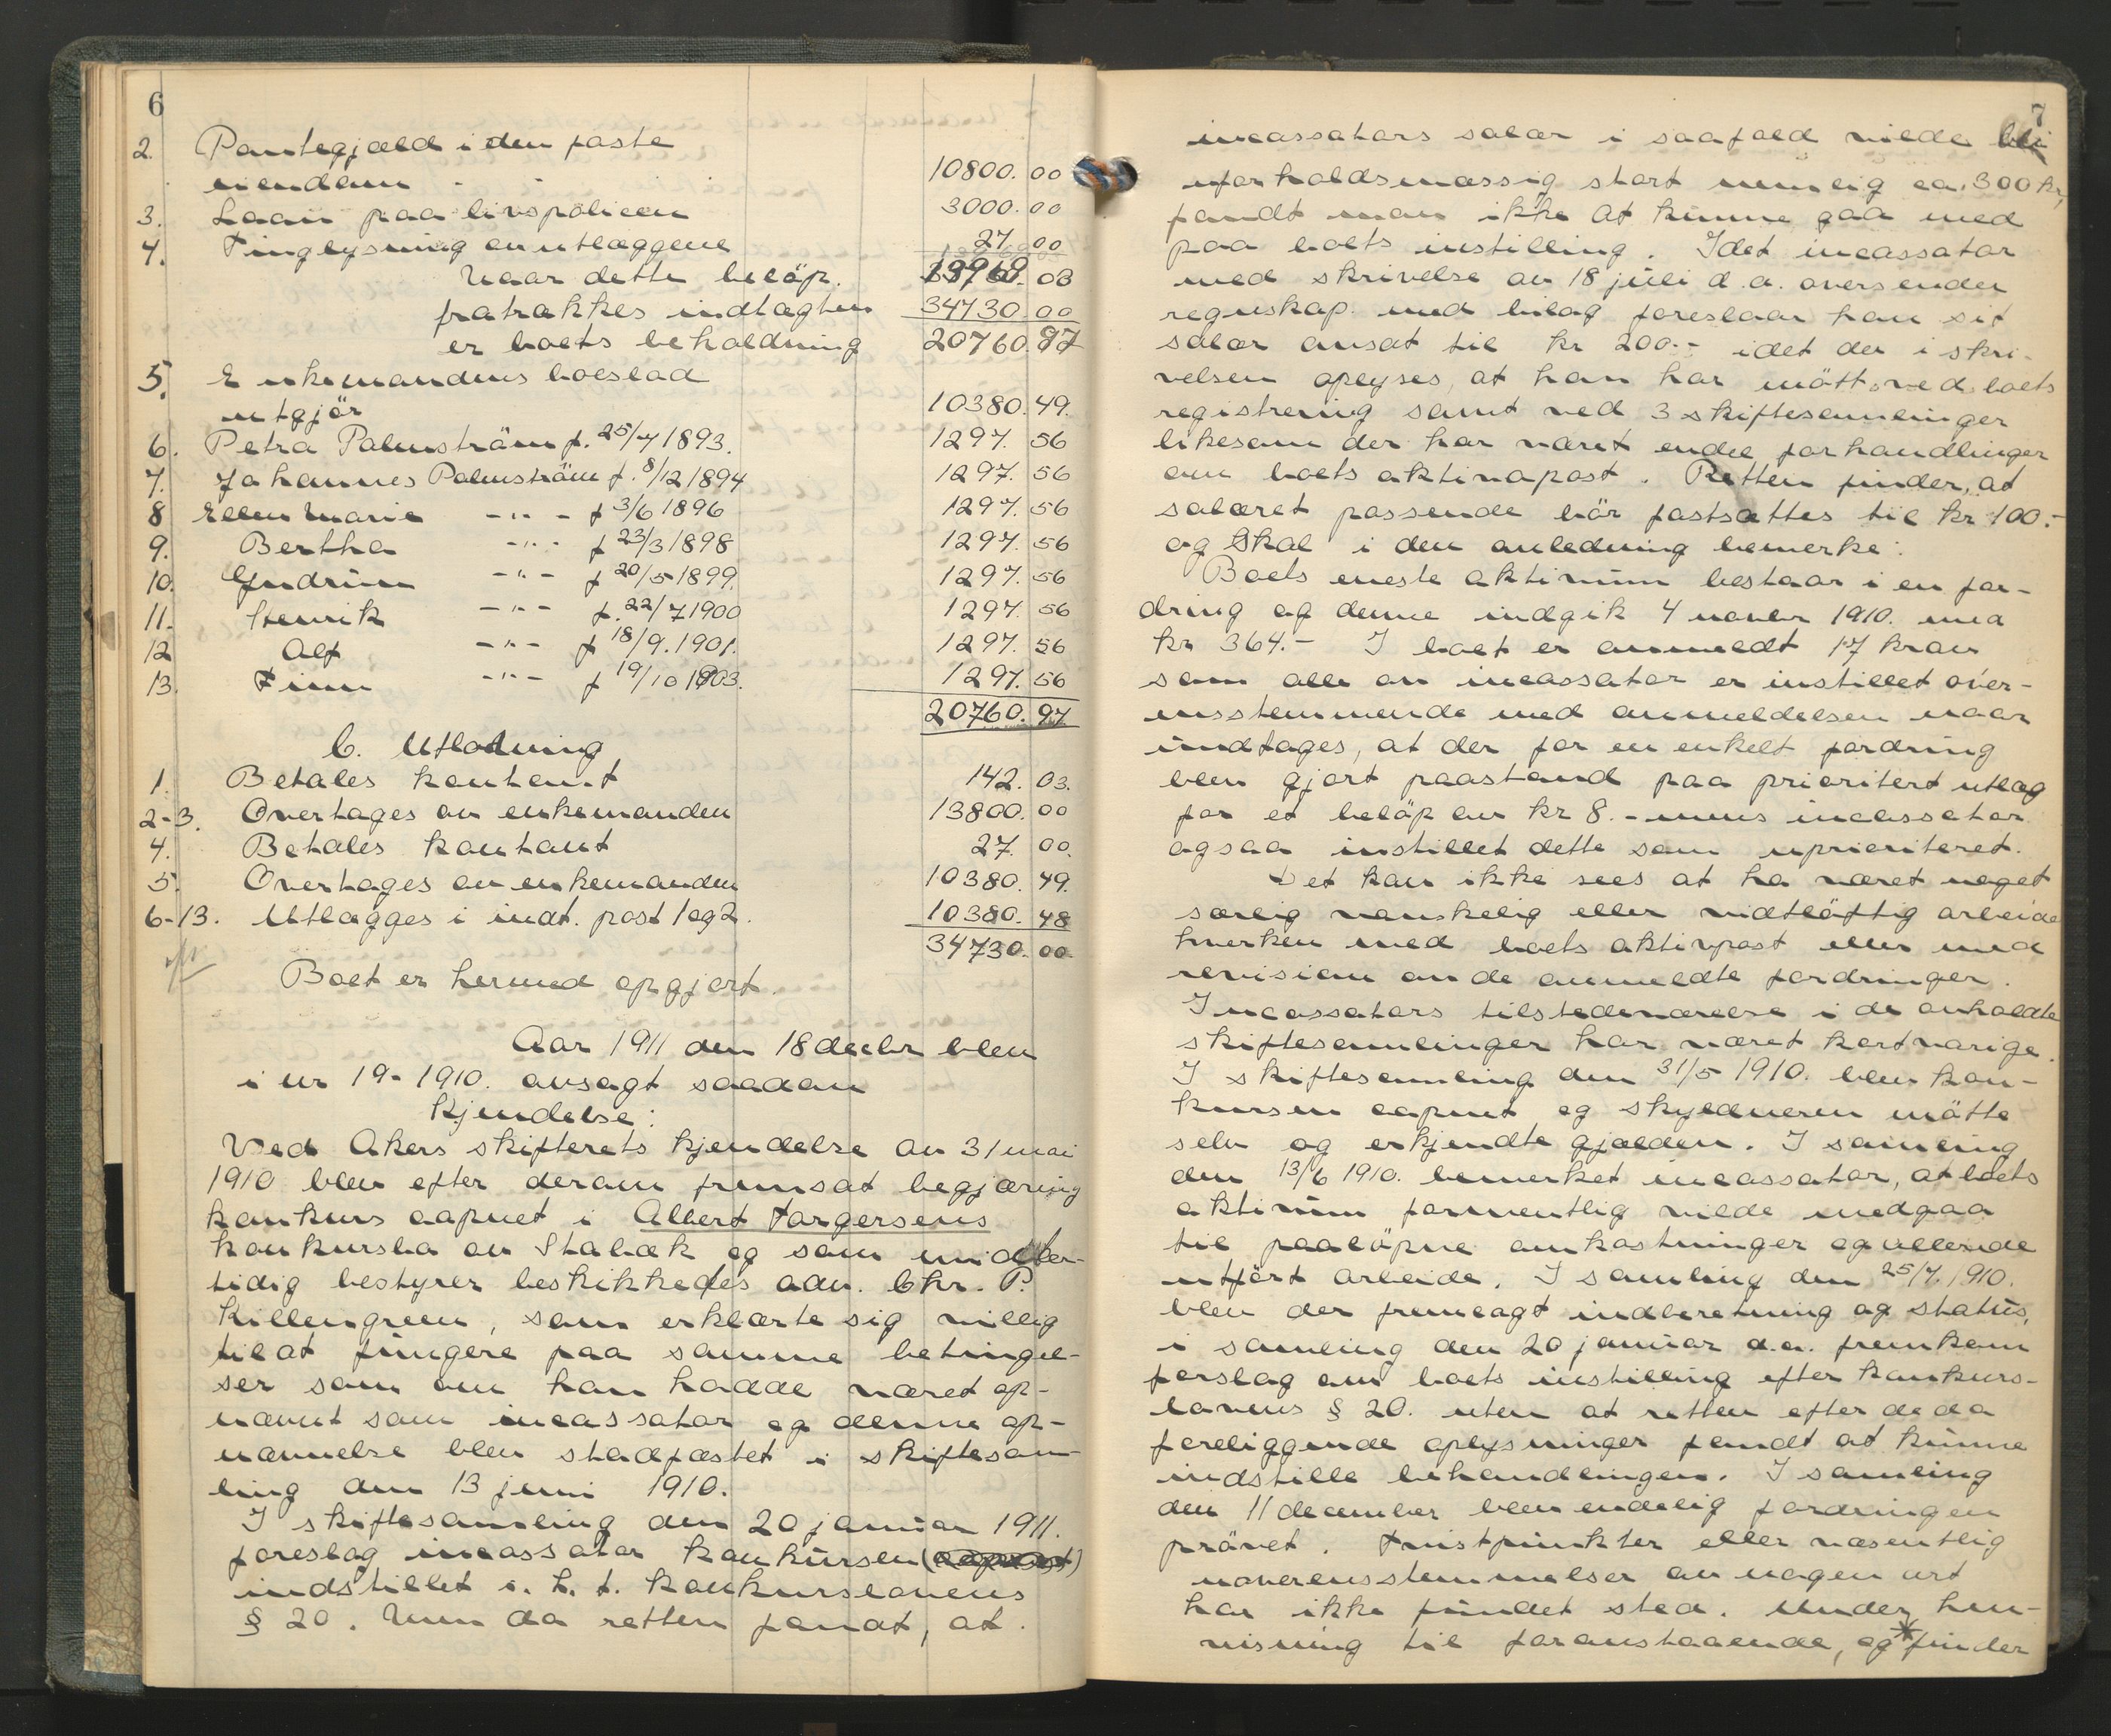 6
2. Pantegjæld i den faste
eiendom - - 10800.00
3. Laan paa livspolicen 3000.00
4. Tinglysning av utlæggene 27.00
Naar dette beløp. 13969.03
fratrækkes indtægten 34730.00
er boets beholdning 20760.97
5. Enkemandens boeslod
utgjör 10380.49.
6. Petra Palmström f. 25/7 1893. 1297.56
7. Johannes Palmström f. 8/12 1894 1297.56
8 Ellen Marie -"- f 3/6 1896 1297.56
9. Bertha -"- f 23/3 1898 1297.56
10. Gudrun -"- f 20/5 1899. 1297.56
11. Henrik -"- f. 22/7 1900 1297.56
12 Alf -"- f 18/9. 1901. 1297.56
13. Finn -"- f 19/10 1903. 1297.56
20760.97
C. Utlodning
1. Betales kontant 142.03.
2-3. Overtages av enkemanden 13800.00
4. Betales kontant 27.00.
5. Overtages av enkemanden 10380.49.
6-13. Utlægges i indt. post 1 og 2. 10380.48
34730.00
Boet er hermed opgjort.
Aar 1911 den 18 decbr blev
i nr 19-1910. avsagt saadan
Kjendelse:
Ved Akers skifterets kjendelse av 31 mai
1910 blev efter derom fremsat begjæring
konkurs aapnet i Albert Torgersens
konkursbo av Stabæk og som midler-
tidig bestyrer beskikkedes adv. Chr. P.
Killengreen, som erklærte sig villig
til at fungere paa samme betingel-
ser som om han hadde været op-
nævnt som incassator og denne op-
nævnelse blev stadfæstet i skiftesam-
ling den 13 juni 1910.
I skiftesamling den 20 januar 1911.
foreslog incassator konkursen (aapnet)
indstillet i. h. t. konkurslovens
§ 20. Men da retten fandt, at
7
incassators salær i saafald vilde bli
uforholdsmæssig stort nemlig ca. 300 kr,
fandt man ikke at kunne gaa med
paa boets instilling. Idet incassator
med skrivelse av 18 juli d.a. oversender
regnskap med bilag foreslaar han sit
salær ansat til kr 200.- idet der i skri-
velsen oplyses, at han har mött ved boets
registrering samt ved 3 skiftesamlinger
likesom der har været endel forhandlinger
om boets aktivapost. Retten finder, at
salæret passende bör fastsættes til kr 100.-
og skal i den anledning bemerke:
Boets eneste aktivum bestaar i en for-
dring og denne indgik 4 novbr 1910. med
kr 364.- I boet er anmeldt 17 krav
som alle av incassator er instillet over-
ensstemmende med anmeldelsen naar
undtages, at der for en enkelt fordring
blev gjort paastand paa prioritert utlæg
for et beløp av kr 8.- mens incassator
ogsaa instillet dette som uprioriteret.
Det kan ikke sees at ha været noget
særlig vanskelig eller vidtløftig arbeide
hverken med boets aktivpost eller med
revision av de anmeldte fordringer.
Incassators tilstedeværelse i de avholdte
skiftesamlinger har været kortvarige.
I skiftesamling den 31/5 1910. blev kon-
kursen aapnet og skyldneren mötte
selv og erkjendte gjælden. I samling
den 13/6 1910. bemerket incassator, at boets
aktivum formentlig vilde medgaa
til paaløpne omkostninger og allerede
utfört arbeide. I samling den 25/7. 1910.
blev der fremlagt indberetning og status,
i samling den 20 januar d.a. fremkom
forslag om boets instilling efter konkurs-
lovens § 20. uten at retten efter de da
foreliggende oplysninger fandt at kunne
indstille behandlingen. I samling
den 11 december blev endelig fordringen
prövet. Tvistpunkter eller væsentlig
uoverensstemmelser av nogen art
har ikke fundet sted. Under hen-
visning til foranstaaende, og* finder